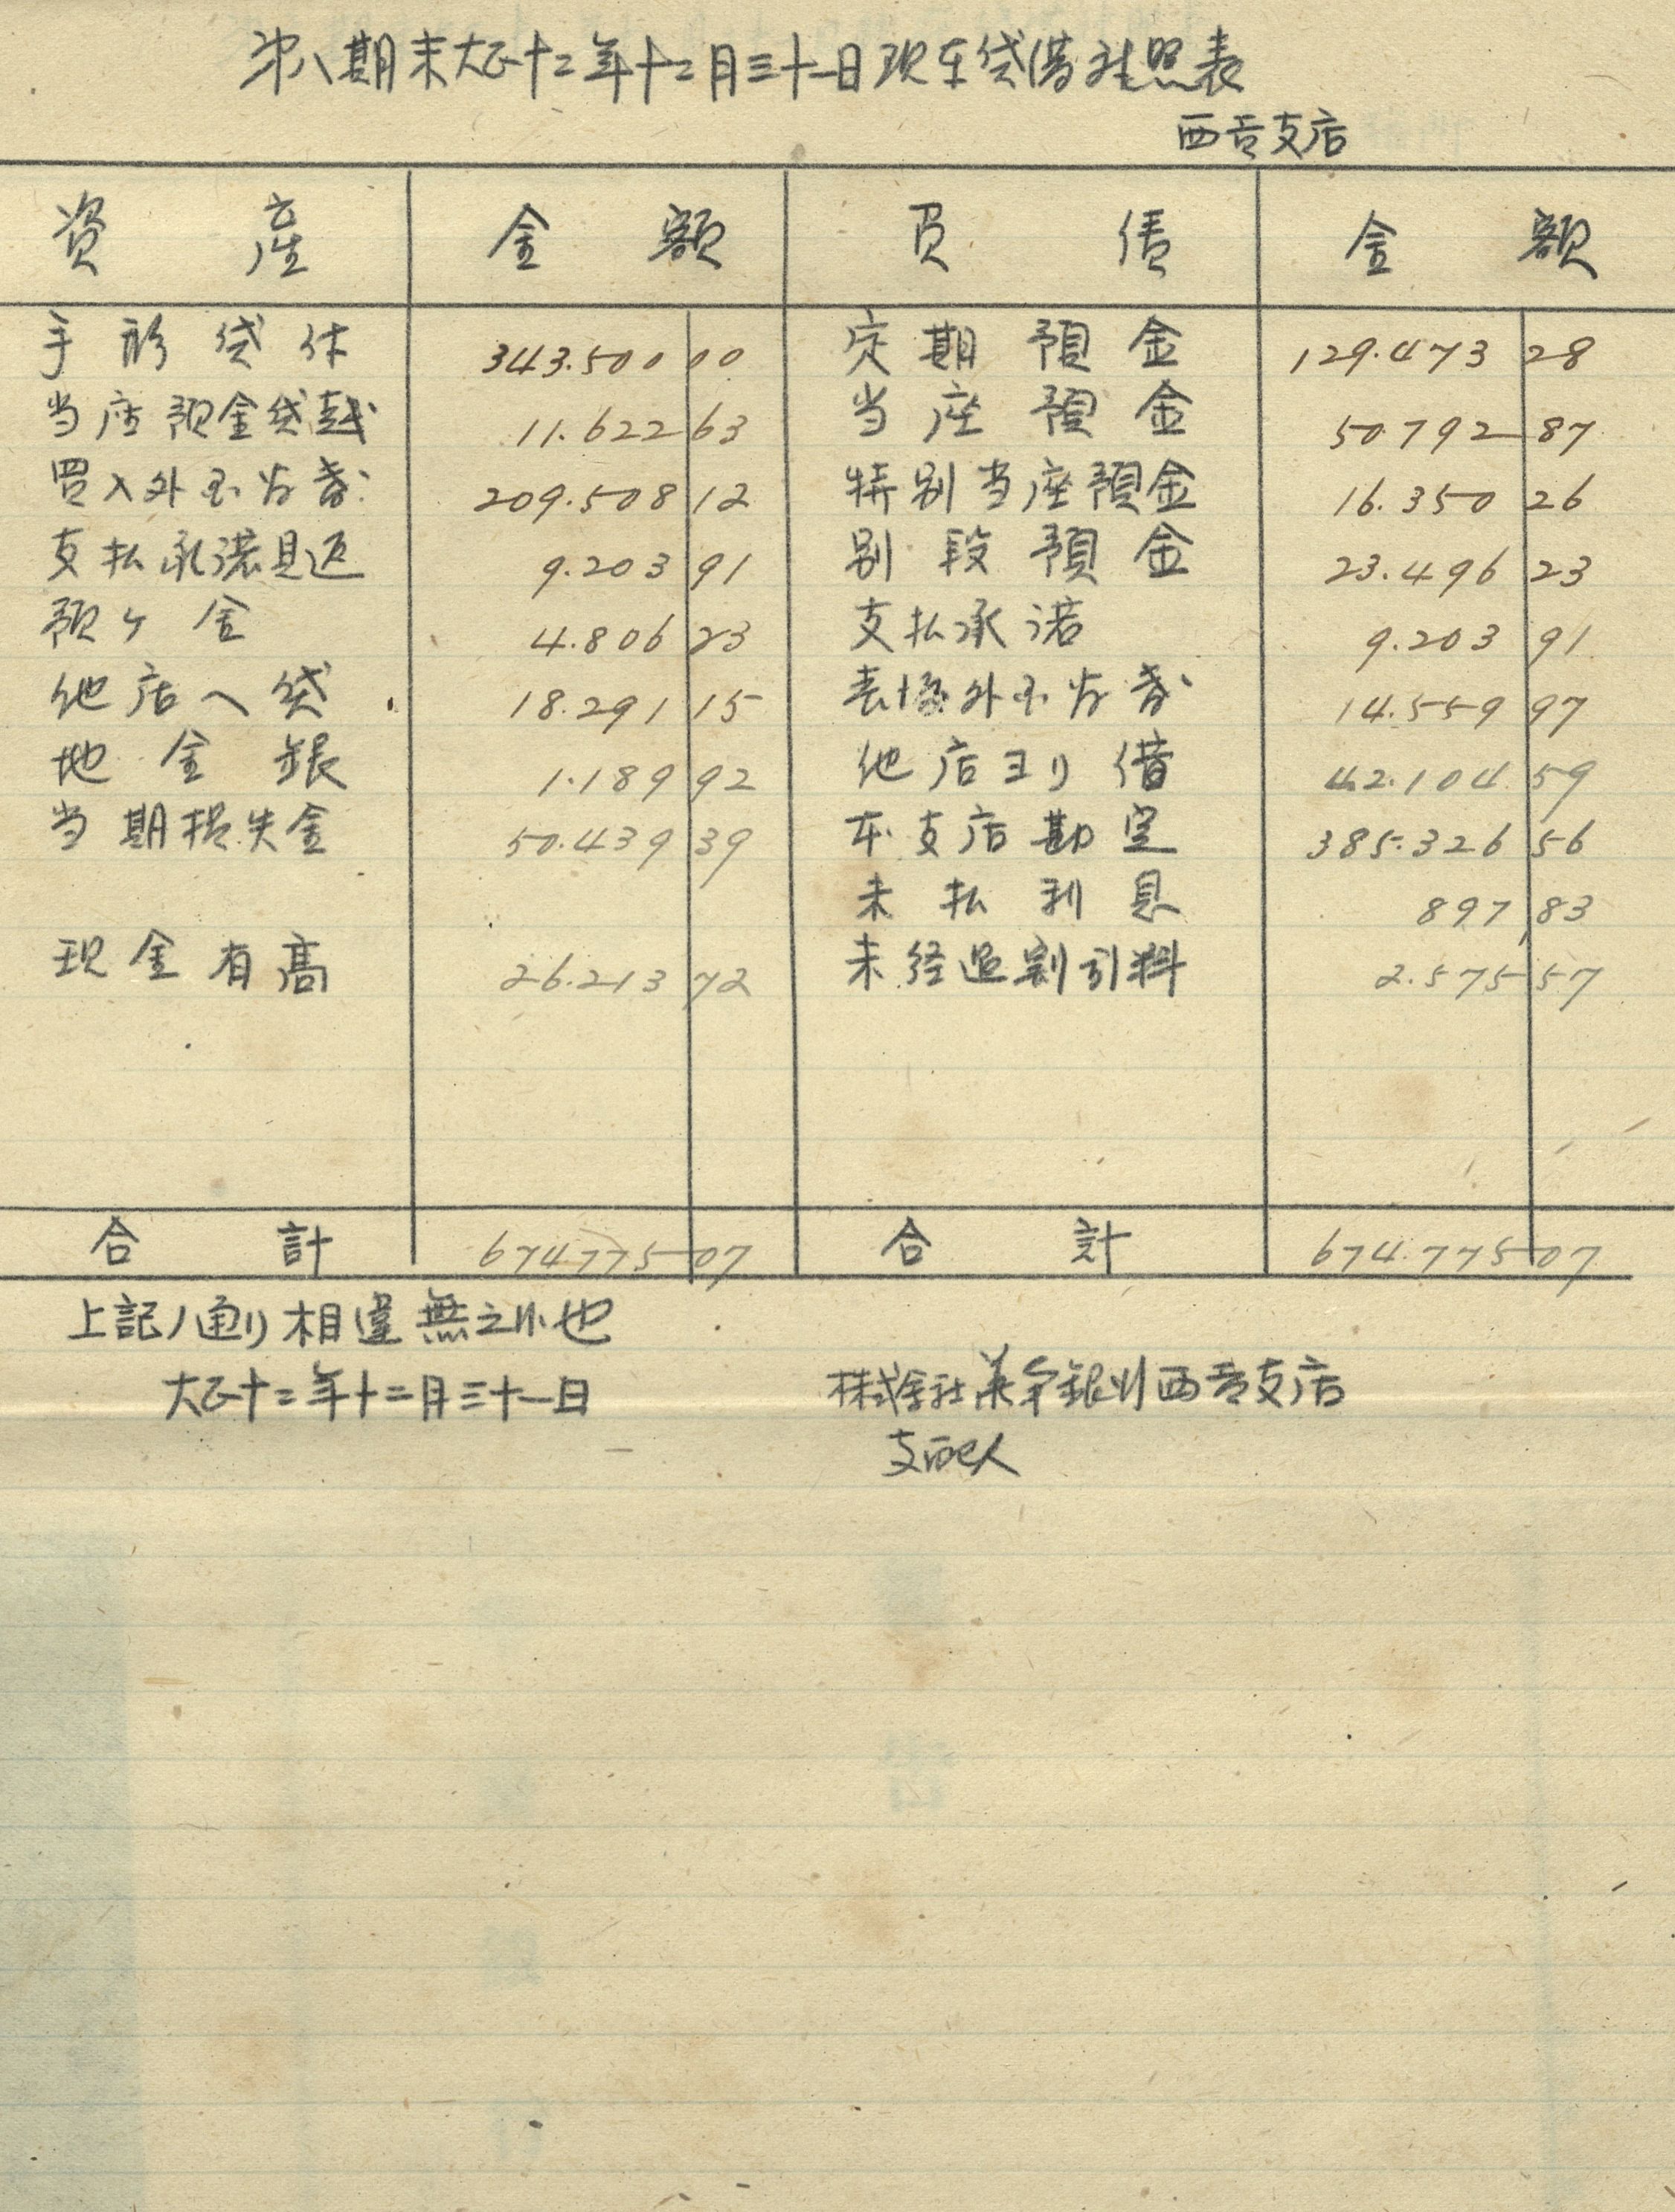 第八期末大正十二年十二月三十一日現在貸借対照表
西貢支店
資産 金額 負債 金額
手形貸付 343.500 00 定期預金 129.473 28
当座預金貸越 11.622 63 当座預金 50.792 87
買入外国為替 209.508 12 特別当座預金 16.350 26
支払承諾見返 9.203 91 別段預金 23.496 23
預ケ金 4.806 23 支払承諾 9.203 91
他店へ貸 18.291 15 外国為替 14.559 97
地金銀 1.189 92 他店ヨリ借 42.104 59
当期損失金 50.439 39 本支店勘定 385.326 56
未払利息 897 83
現金有高 26.213 72 未経過割引料 2.575 57
合計 674775 07 合計 674.775 07
上記ノ通リ相違無之候也
大正十二年十二月三十一日 株式会社 銀行西貢支店
支配人